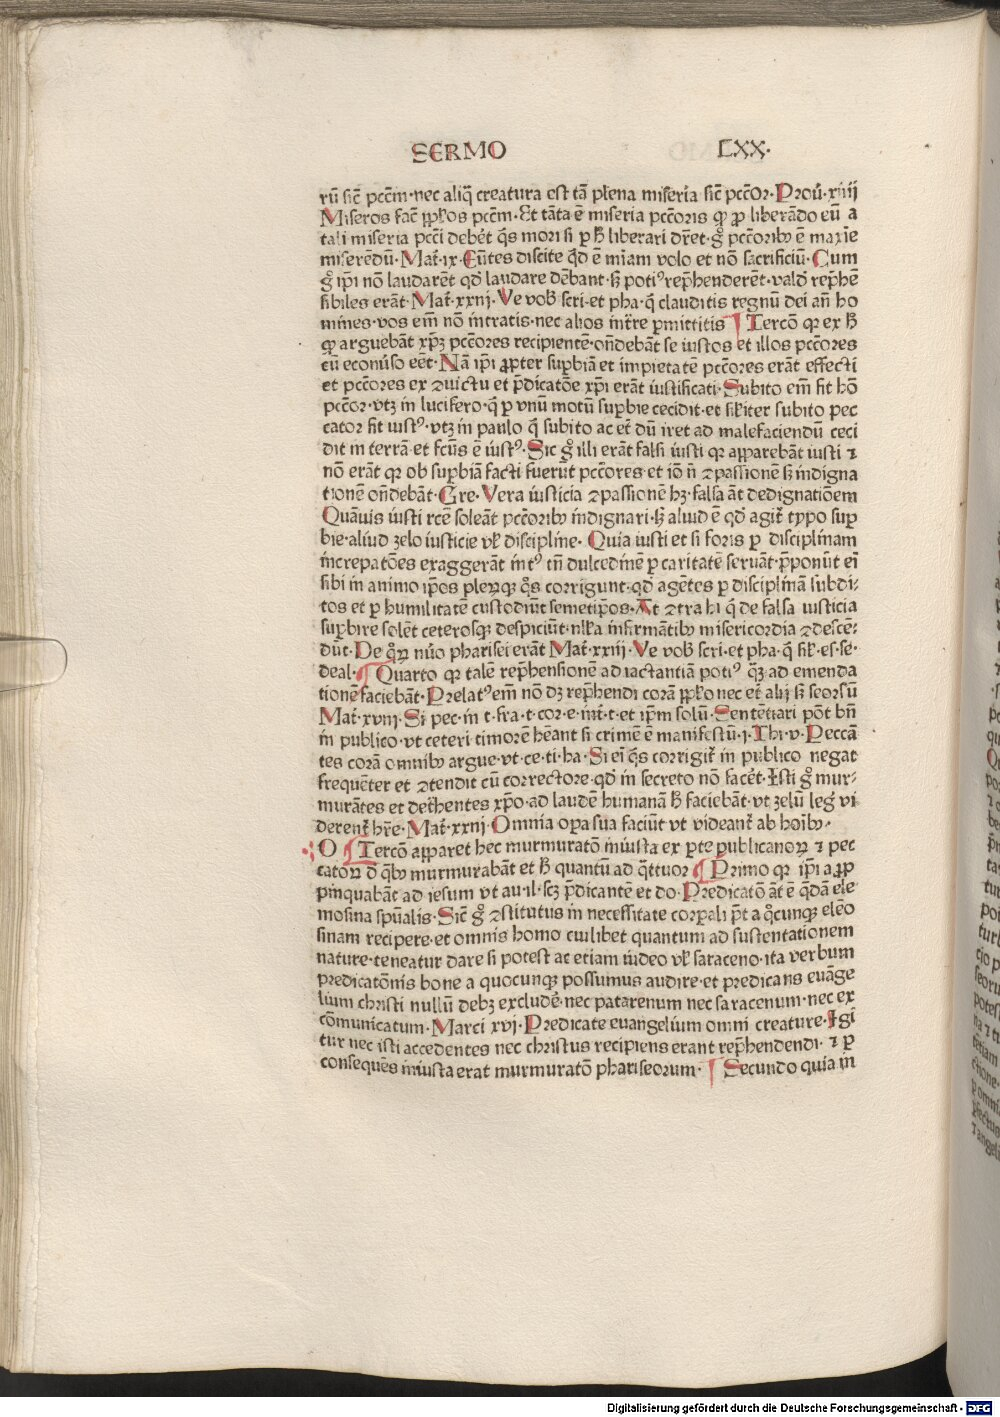 SERMO CXX·
rū sic̄ pcc̄m·nec aliq̄ creatura est tā plena miseria sic̄ pcc̄or·Prou̇·xiiij
Miseros fac̄ ꝓpl̄os pcc̄m·Et tāta ē miseria pcc̄oris qꝫ ꝓ liberādo eū a
tali miseria pcc̄i debēt q̄s mori si ꝑ h̄ liberari dr̄et·g̊ pcc̄oribꝰ ē maxīe
miserēdū·Mat̄·ix·Eūtes discite qd̄ ē mīam volo et nō sacrificiū·Cum
g̊ ip̄i nō laudarēt qd̄ laudare dēbant·sꝫ potiꝰ rep̄henderēt·vald̄ rep̄hē
sibiles erāt·Mat̄·xxiij·Ve vob̄ scri·et pha·q̄ clauditis regnū dei an̄ ho
mines·vos em̄ nō intratis·nec alios int̄re ꝑmittitis Tercō qꝛ ex h̄
qꝫ arguebāt xp̄ꝫ pcc̄ores recipientē·on̄debāt se iustos et illos pcc̄ores
cū econūso eēt·Nā ip̄i ꝓpter suꝑbiā et impietatē pcc̄ores erāt effecti
et pcc̄ores ex ꝯuictu et p̄dicatōe xp̄i erāt iustificati·Subito em̄ fit hō
pcc̄or·vtꝫ in lucifero·q̄ ꝑ vnū motū suꝑbie cecidit·et sil̄iter subito pec
cator fit iustꝰ·vtꝫ in paulo q̄ subito ac et̄ dū iret ad malefaciendū ceci
dit in terrā·et fc̄us ē iustꝰ·Sic g̊ illi erāt falsi iusti qꝛ apparebāt iusti ⁊
nō erāt qꝛ ob suꝑbiā facti fuerūt pcc̄ores et iō n̄ ꝯpassionē sꝫ indigna
tionē on̄debāt·Gre·Vera iusticia ꝯpassionē hꝫ·falsa āt dedignatiōem
Quāuis iusti rc̄e soleāt pcc̄oribꝰ indignari·sꝫ aliud ē qd̄ agit̄ typo suꝑ
bie·aliud zelo iusticie vl̄ discipline· Quia iusti et si foris ꝑ disciplinam
increpatōes exaggerāt intꝰ tn̄ dulcedinē ꝑ caritatē seruāt·p̄ponūt ei
sibi in animo ip̄os plerūqꝫ q̄s corrigunt·qd̄ agētes ꝑ disciplinā subdi⸗
tos et ꝑ humilitatē custodiūt semetip̄os·At ꝯtra hi q̄ de falsa iusticia
suꝑbire solēt ceterosqꝫ despiciūt·nl̄la infirmātibꝰ misericordia ꝯdescē⸗
dūt·De q̄ꝝ nu̅o pharisei erāt Mat̄·xxiij·Ve vob̄ scri·et pha·q̄ sil̄·es·se·
deal· Quarto qꝛ talē rep̄hensionē ad iactantiā potiꝰ q̄ꝫ ad emenda
tionē faciebāt·Prelatꝰ em̄ nō dꝫ rep̄hendi corā ꝓpl̄o nec et̄ alij sꝫ seorsū
Mat̄·xviij·Si pec·in t·fra·t·cor·e·int̄·t·et ip̄m solū·Sentētiari pōt bn̄
in publico·vt ceteri timorē hēant si crimē ē manifestū·j·Thi·v·Peccā
tes corā omnibꝰ argue·vt·ce·ti·ha·Si ei q̄s corrigit̄ in publico negat
frequēter et ꝯtendit cū correctore·qd̄ in secreto nō facēt·Isti g̊ mur⸗
murātes et det̄hentes xp̄o·ad laudē humanā h̄ faciebāt·vt zelū leḡ vi
derent̄ hr̄e·Mat̄·xxiij·Omnia oꝑa sua faciūt vt videant̄ ab hoībꝰ·
O Tercō apparet hec murmuratō iniusta ex ꝑte publicanoꝝ ⁊ pec
catoꝝ d̄ q̄bꝰ murmurabāt et h̄ quantū ad q̄ttuor Primo qꝛ ip̄i a ꝓp
pinquabāt ad iesum vt au·il·scꝫ p̄dicantē et do·Predicatō āt ē q̄dā ele
mosina spūalis·Sic̄ g̊ ꝯstitutus in necessitate corꝑali p̄t a q̊cunqꝫ eleō
sinam recipere·et omnis homo cuilibet quantum ad sustentationem
nature·teneatur dare si potest ac etiam iudeo vl̄ saraceno·ita verbum
predicatōnis bone a quocunqꝫ possumus audire·et predicans euāge
lium christi nullū debꝫ excludē·nec patarenum nec saracenum·nec ex
cōmunicatum·Marci xvj·Predicate euangelium omni creature·Igi
tur nec isti accedentes nec christus recipiens erant rep̄hendendi·⁊ ꝑ
consequēs iniusta erat murmuratō phariseorum· Secundo quia in
Digitalisierung gefördert durch die Deutsche Forschungsgemeinschaft - DFG